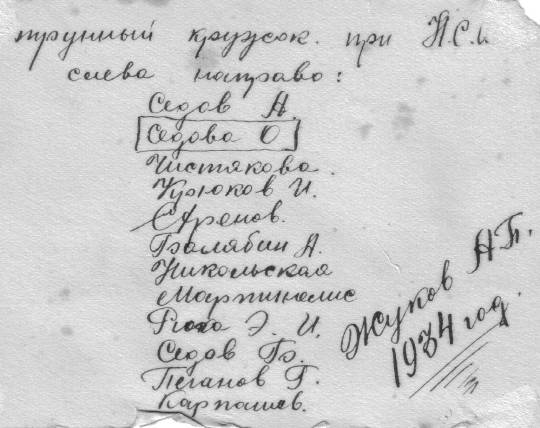 трунный кружок. при Н.С.Ш
слева направо:
Седов А.
Седова О
Чистякова.
Крюков И.
Аренов.
Балябин А.
Никольская
Мартинелис
Э. И.
Седов Б.
Пеганов Г.
Карпашев.
Жуков А.П.
1934 год.